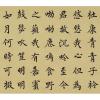 杜康青青子衿
悠悠我心但為
君故沉吟至今
呦呦鹿鳴食野
之苹我有嘉賓
鼓瑟吹笙明明
如月何時可掇